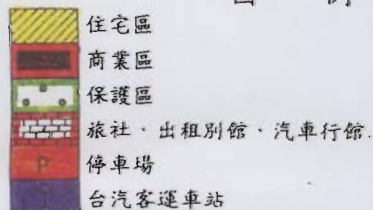 圖 例
住宅區
商業區
保護區
旅社、出租別館、汽車行館.
P
停車場
台汽客運車站